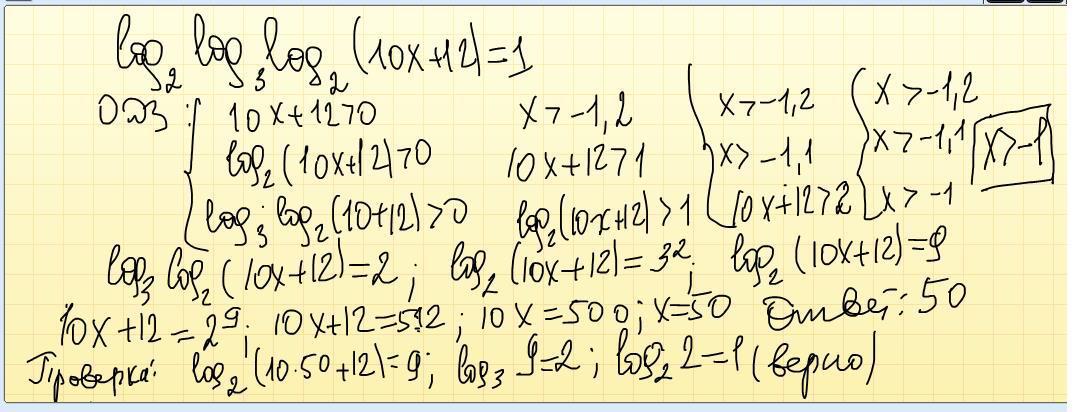 log₂ log₃ log₂ (10x+12)=1
ОДЗ: { 10x+12>0   x>-1,2   { x>-1,2   { x>-1,2
log₂(10x+12)>0   10x+12>1   x>-1,1   x>-1,1   x>-1
log₃ log₂(10+12)>0   log₂(10x+12)>1   10x+12>2   x>-1
log₃ log₂ (10x+12)=2; log₂ (10x+12)=3²; log₂ (10x+12)=9
10x+12=2⁹; 10x+12=512; 10x=500; x=50   Ответ: 50
Проверка: log₂(10·50+12)=9; log₃ 9=2; log₂ 2=1 (верно)